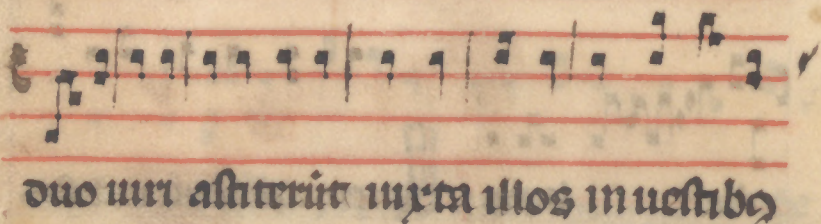 duo uiri astiterūt iuxta illos in uestibꝰ